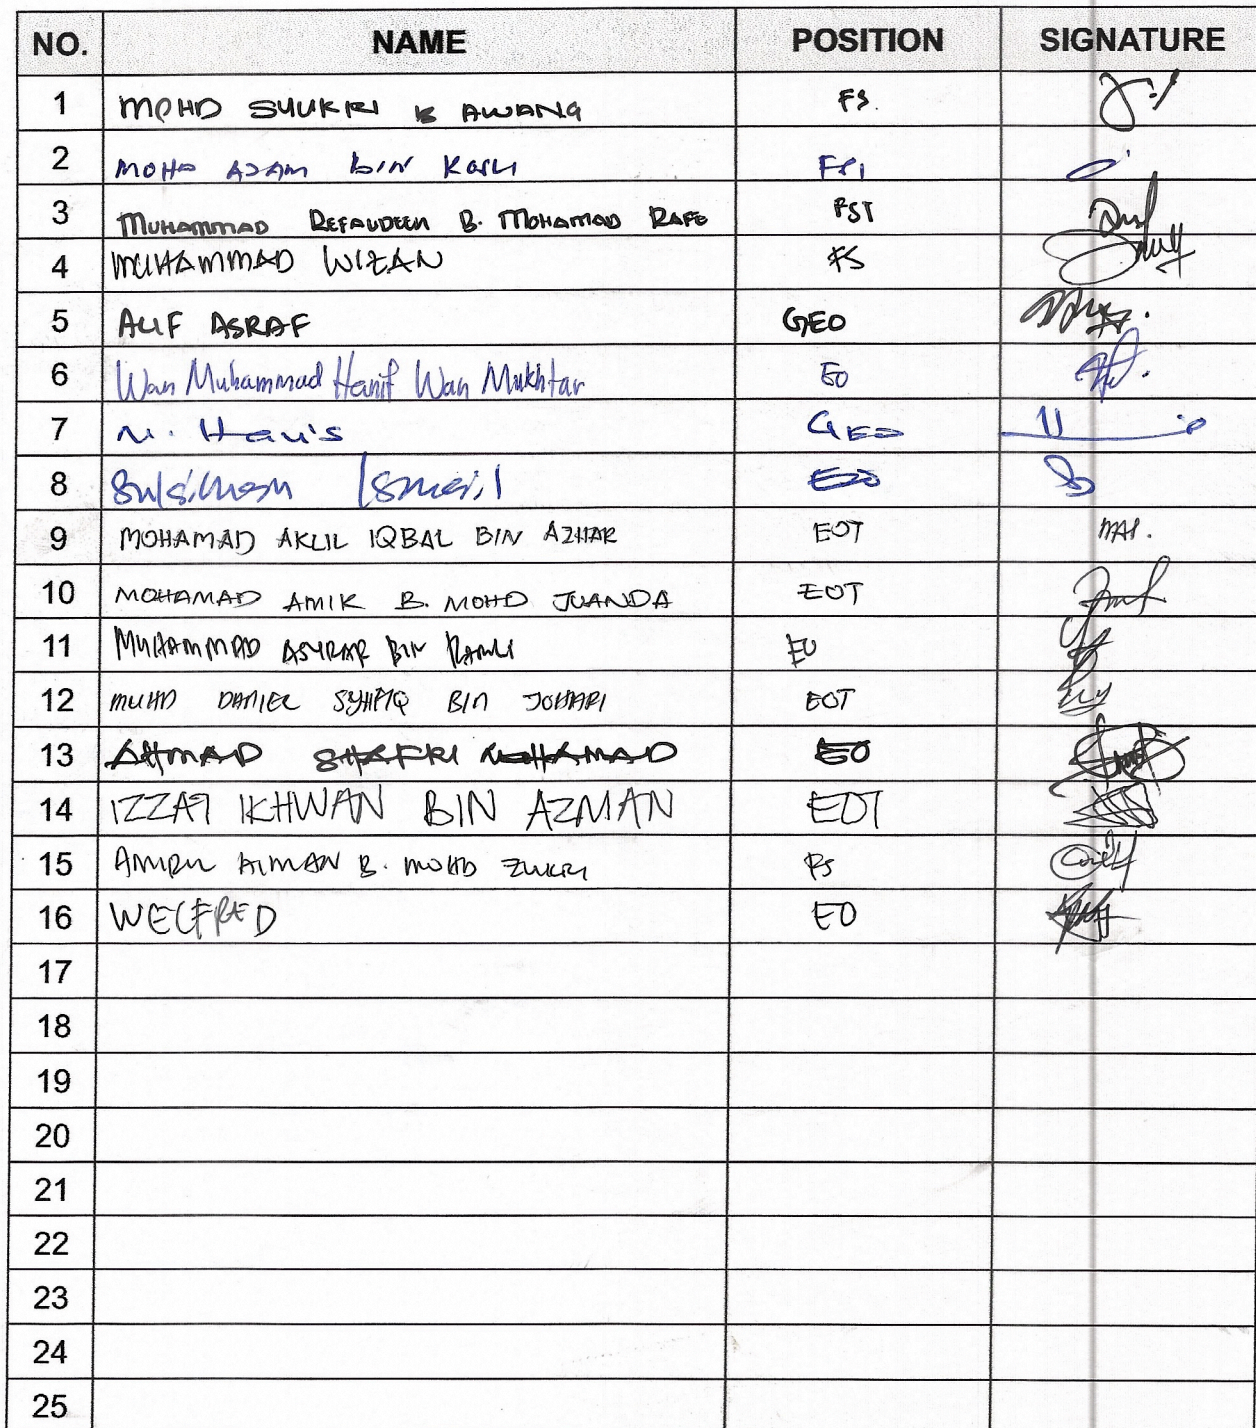 NO. NAME POSITION SIGNATURE
1 MOHD SYUKRI B AWANG FS
2 MOHD AZAM BIN FSI
3 MUHAMMAD REFAUDEEN B. MOHAMAD RAFE FST
4 MUHAMMAD WIZAN FS
5 ALIF ASRAF GEO
6 Wan Muhammad Hanif Wan Mukhtar EO
7 N. Hauis GEO
8 Sulaiman Ismail
9 MOHAMAD AKLIL IQBAL BIN AZHAR EOT
10 MOHAMAD AMIK B. MOHD JUANDA EOT
11 MUHAMMAD ASYRAF BIN RAMLI EO
12 MUHD DANIEL SYAFIQ BIN JOHARI EOT
13 AHMAD SHAFRI MOHAMAD EO
14 IZZAT IKHWAN BIN AZMAN EOT
15 AMIRUL AIMAN B. MOHD ZUKRI FS
16 WELFRED EO
17
18
19
20
21
22
23
24
25